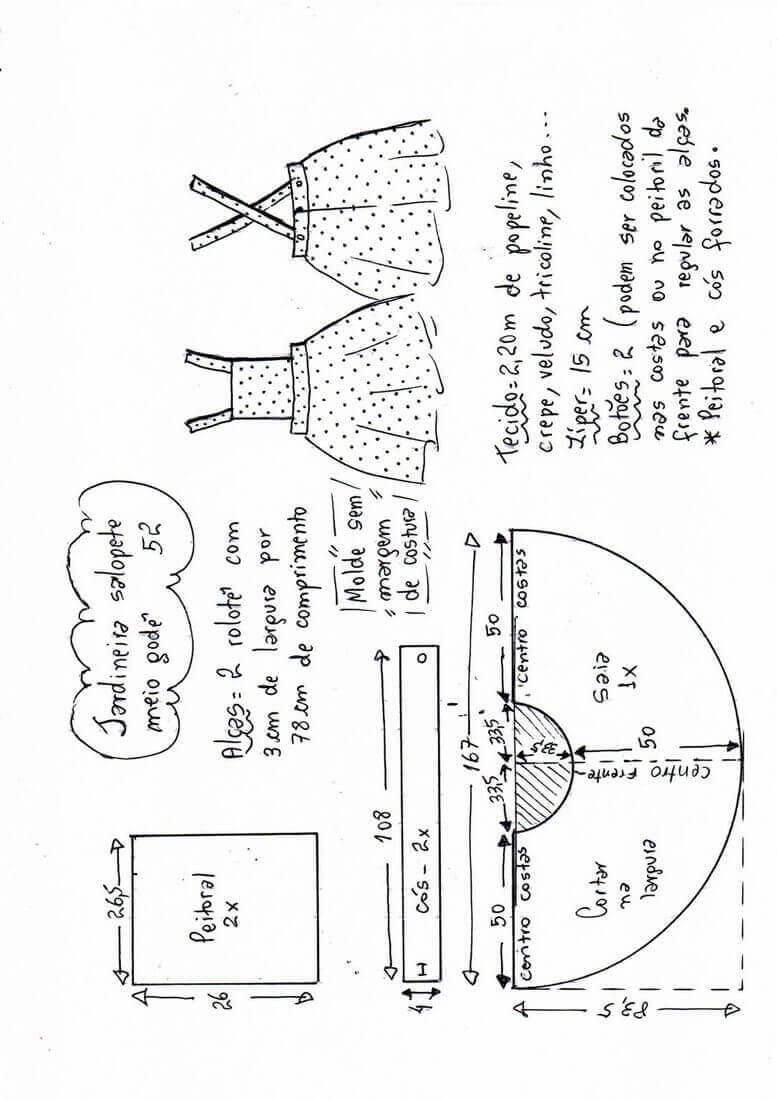 Jardineira salopete
meio godê 52
Alças= 2 rolotês com
3 cm de largura por
78 cm de comprimento
Molde sem
margem
de costura
Tecido= 2,20m de popeline,
crepe, veludo, tricoline, linho...
Zíper= 15 cm
Botões= 2 (podem ser colocados
nas costas ou no peitoril da
frente para regular as alças.
* Peitoral e cós forrados.
26,5
26
Peitoral
2x
108
4
cós - 2x
167
50
33,5
33,5
50
centro costas
centro costas
33,5
50
centro frente
Saia
1x
Cortar
na
largura
83,5